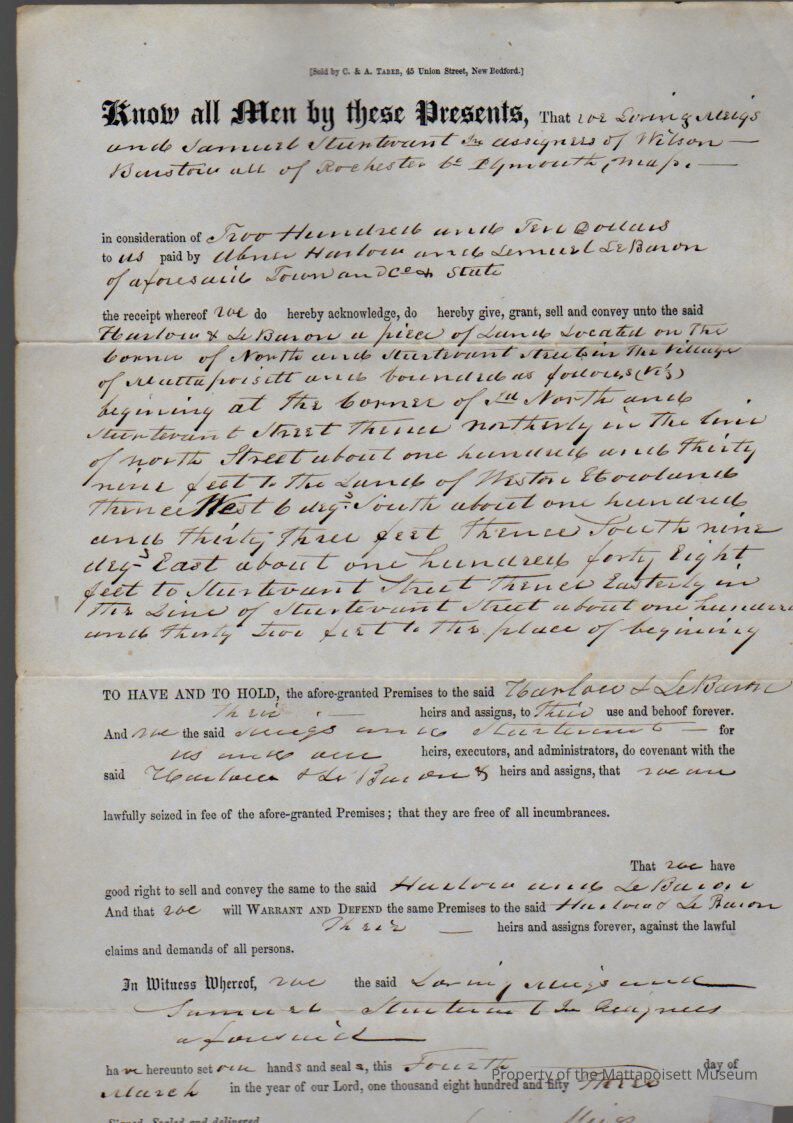 [Sold by C. & A. Taber, 45 Union Street, New Bedford.]
Know all Men by these Presents, That we Loring Meigs
and Samuel Sturtevant Jr assignees of Wilson
Barstow all of Rochester Co Plymouth, Mass.
in consideration of Two Hundred and Ten Dollars
to us paid by Abner Harlow and Lemuel LeBaron
of aforesaid Town and Co & State
the receipt whereof we do hereby acknowledge, do hereby give, grant, sell and convey unto the said
Harlow & LeBaron a piece of Land Located on the
Corner of North and Sturtevant Streets in the village
of Mattapoisett and bounded as follows (viz)
begining at the Corner of sd North and
Sturtevant Street Thence northerly in the line
of north Street about one hundred and thirty
nine feet to the Land of Weston Howland
thence West 6 degs South about one hundred
and thirty three feet Thence South nine
degs East about one hundred forty Eight
feet to Sturtevant Street Thence Easterly in
the Line of Sturtevant Street about one hundred
and thirty two feet to the place of begining
TO HAVE AND TO HOLD, the afore-granted Premises to the said Harlow & LeBaron
Their heirs and assigns, to Their use and behoof forever.
And we the said Meigs and Sturtevant for
us and our heirs, executors, and administrators, do covenant with the
said Harlow & LeBaron & heirs and assigns, that we are
lawfully seized in fee of the afore-granted Premises; that they are free of all incumbrances.
That we have
good right to sell and convey the same to the said Harlow and LeBaron
And that we will WARRANT AND DEFEND the same Premises to the said Harlow & LeBaron
Their heirs and assigns forever, against the lawful
claims and demands of all persons.
In Witness Whereof, we the said Loring Meigs and
Samuel Sturtevant Jr Assignees
aforesaid
have hereunto set our hands and seals, this Fourth day of
March in the year of our Lord, one thousand eight hundred and fifty Three
Property of the Mattapoisett Museum
Signed, Sealed and delivered
Meigs